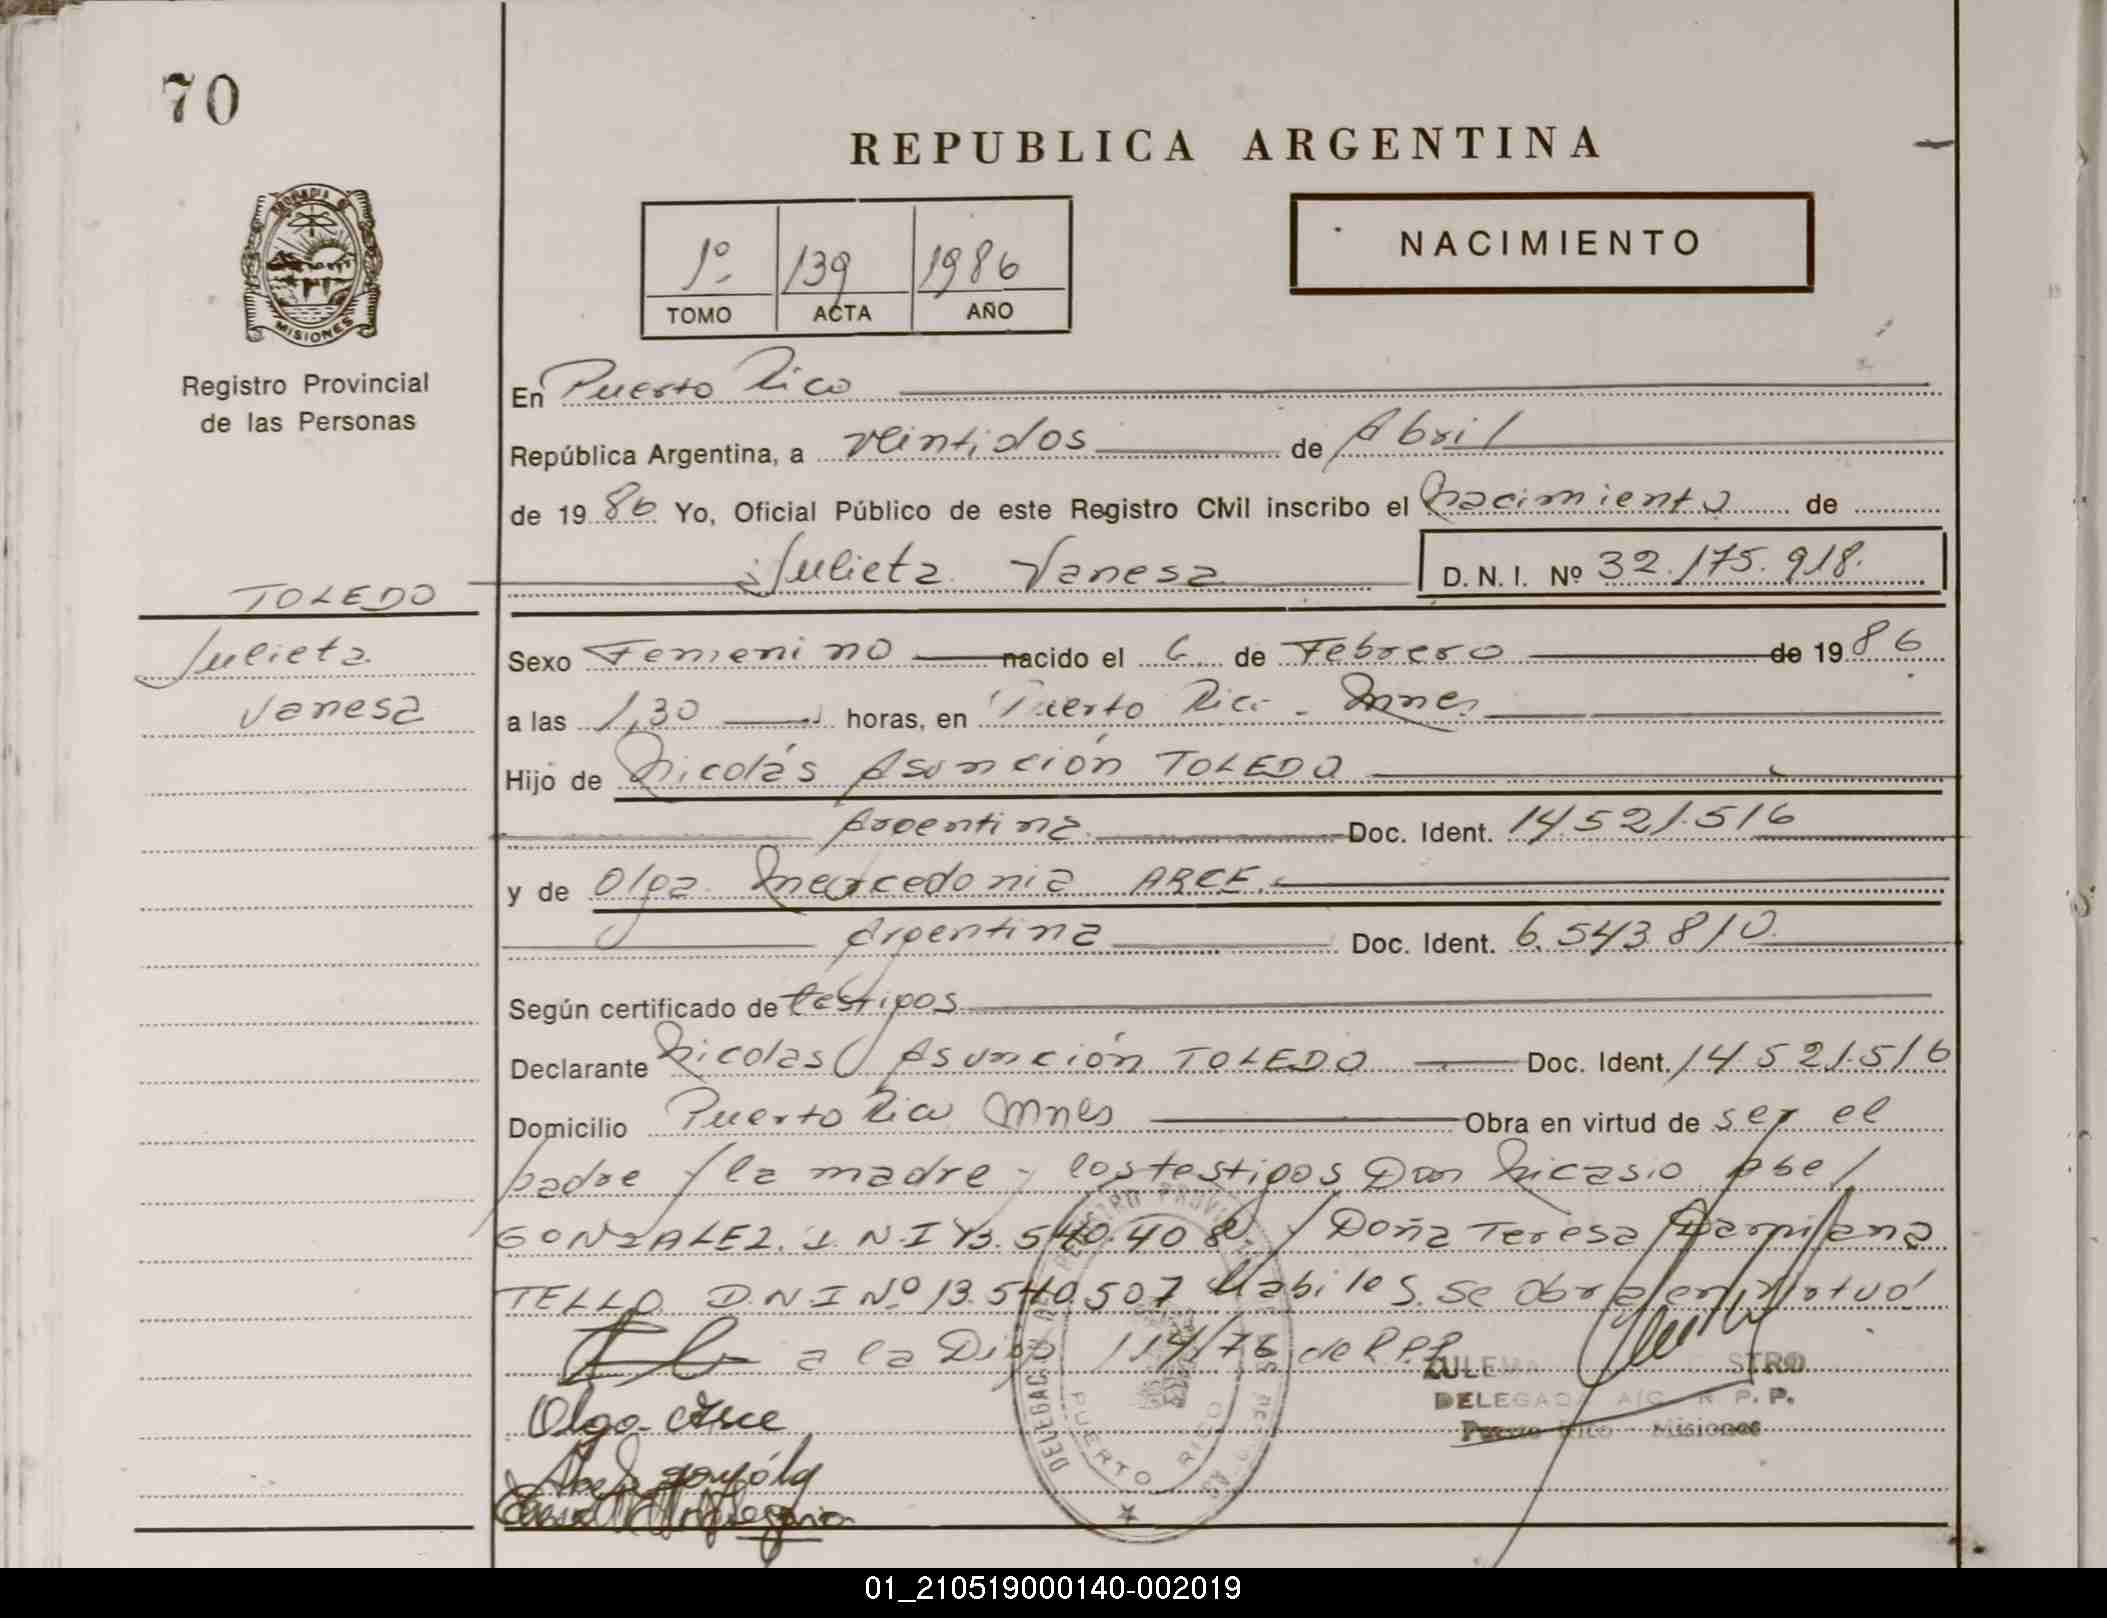 70
REPUBLICA ARGENTINA
PROVINCIA DE MISIONES
1º 139 1986
TOMO ACTA AÑO
NACIMIENTO
Registro Provincial
de las Personas
En Puerto Rico
República Argentina, a veintidos de Abril
de 1986 Yo, Oficial Público de este Registro Civil inscribo el Nacimiento de
Julieta Vanesa D. N. I. Nº 32.175.918.
TOLEDO
Julieta
Vanesa
Sexo Femenino nacido el 6 de Febrero de 1986
a las 1,30 horas, en Puerto Rico - Mnes
Hijo de Nicolás Asunción TOLEDO
Argentina Doc. Ident. 14.521.516
y de Olga Mercedonia ARCE
Argentina Doc. Ident. 6.543.810
Según certificado de testigos
Declarante Nicolas Asunción TOLEDO Doc. Ident. 14.521.516
Domicilio Puerto Rico Mnes Obra en virtud de ser el
padre y la madre y los testigos Don Nicasio Abel
GONZALEZ D.N.I 13.540.408 y Doña Teresa
TELLO D.N.I Nº 13.540.507 habiles. Se obra en virtud
a la Disp 114/76 de R.P.P.
Olga Arce
Abel González
ZULEMA STRO
DELEGADA A/C R. P. P.
Puerto Rico - Misiones
DELEGACION DEL REGISTRO PROVINCIAL DE LAS PERSONAS
PUERTO RICO
01_210519000140-002019